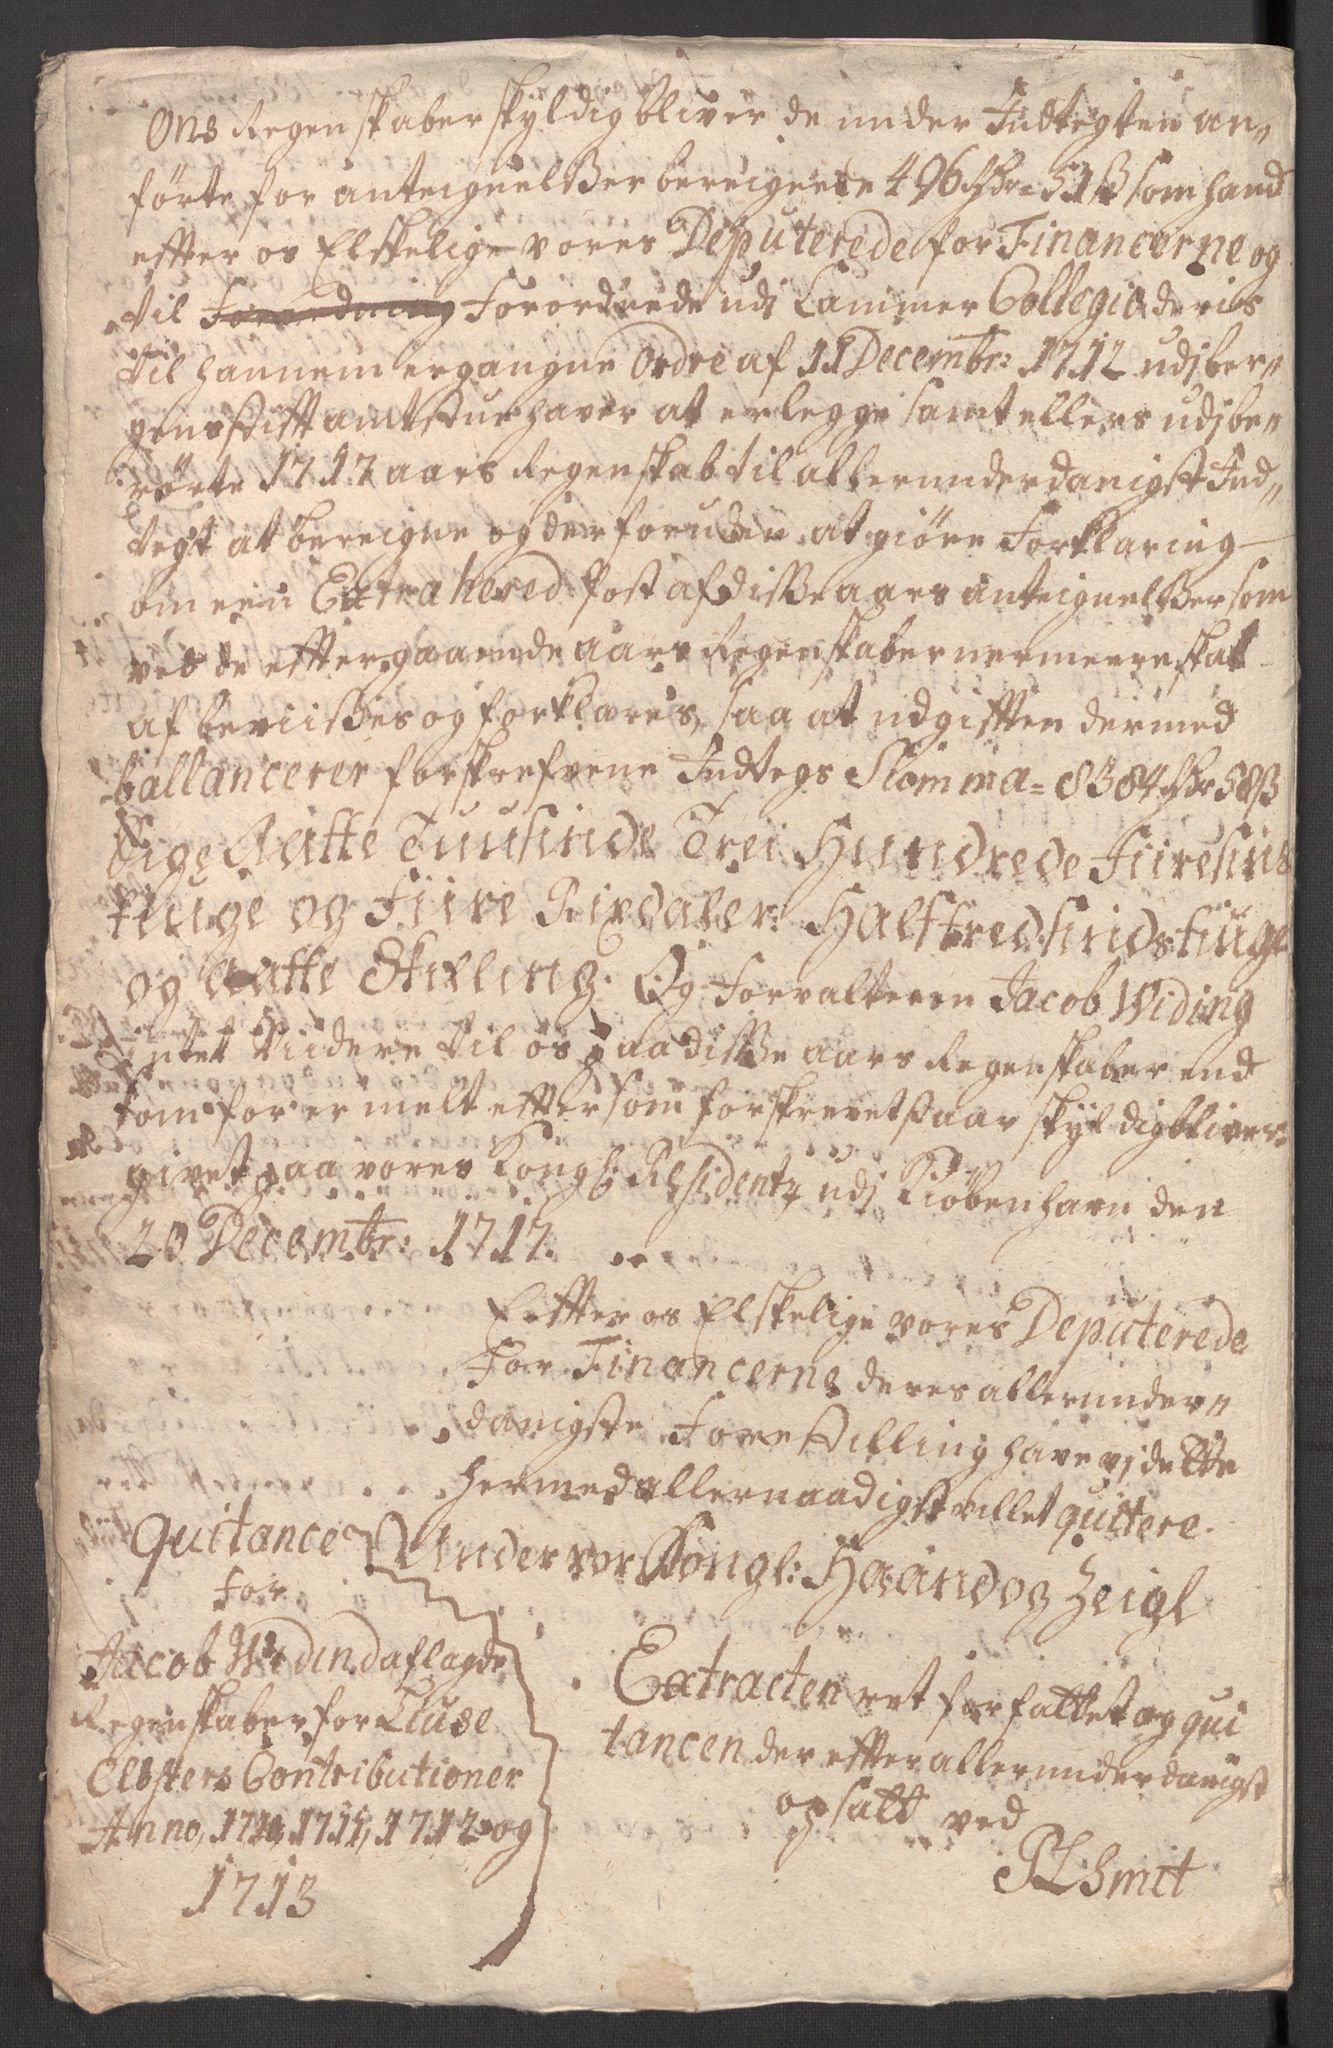 Ons Regenskaber skyldig bliver de under Indtegten an„
førte for anteignelßer bereignede 496 Rdr = 51 ß som hand
effter os Elskelige vores Deputerede for Financerne og
til Forordning Forordnede udi Cammer Collegio deris
til hannem ergangne Ordre af 11 Decembr: 1712 udj ber„
gens Stifftamtstue haver at erlegge samt ellers udj be„
rørte 1717 aars Regenskab til allerunderdanigst Ind„
tegt at bereigne og der foruden at giøre Forklaring
om een Extrahered Post af disße aars anteignelßer som
ved de efftergaaende aars Regenskaber nermeere skal
af beviißes og forklares, saa at udgifften dermed
ballancerer forskrefvene Indtegs Summa = 8384 Rdr 58 ß
Sige Aatte Tuusinde Trei Hundrede Fiiresinds
tiuge og Fiire Rixdaler: Halftredsindstiuge
og Aatte Skilling. Og Forvalteren Jacob Widing
intet Viidere til os paa disße aars Regenskaber end
som for er melt effter som forskrevet staar skyldig bliver
givet paa vores Kongl: Residentz udj Kiøbenhavn den
20 Decembr: 1717.
Effter os Elskelige vores Deputerede
For Financerne deres allerunder„
danigste Forestilling have vj dette
hermed allernaadigst villet quittere.
Quitance Under vor Kongl: Haand og Zeigl
for
Jacob Widind aflagde
Regenskaber for Liuse
Closters Contributioner
Anno, 1710, 1711, 1712 og
1713
Extracten ret forfattet og qui
tancen der effter allerunderdanigst
opsatt ved
PLSmit